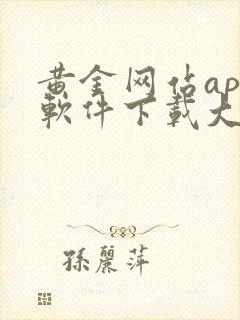 黄金网估ap
軟件下載大
孫麗萍